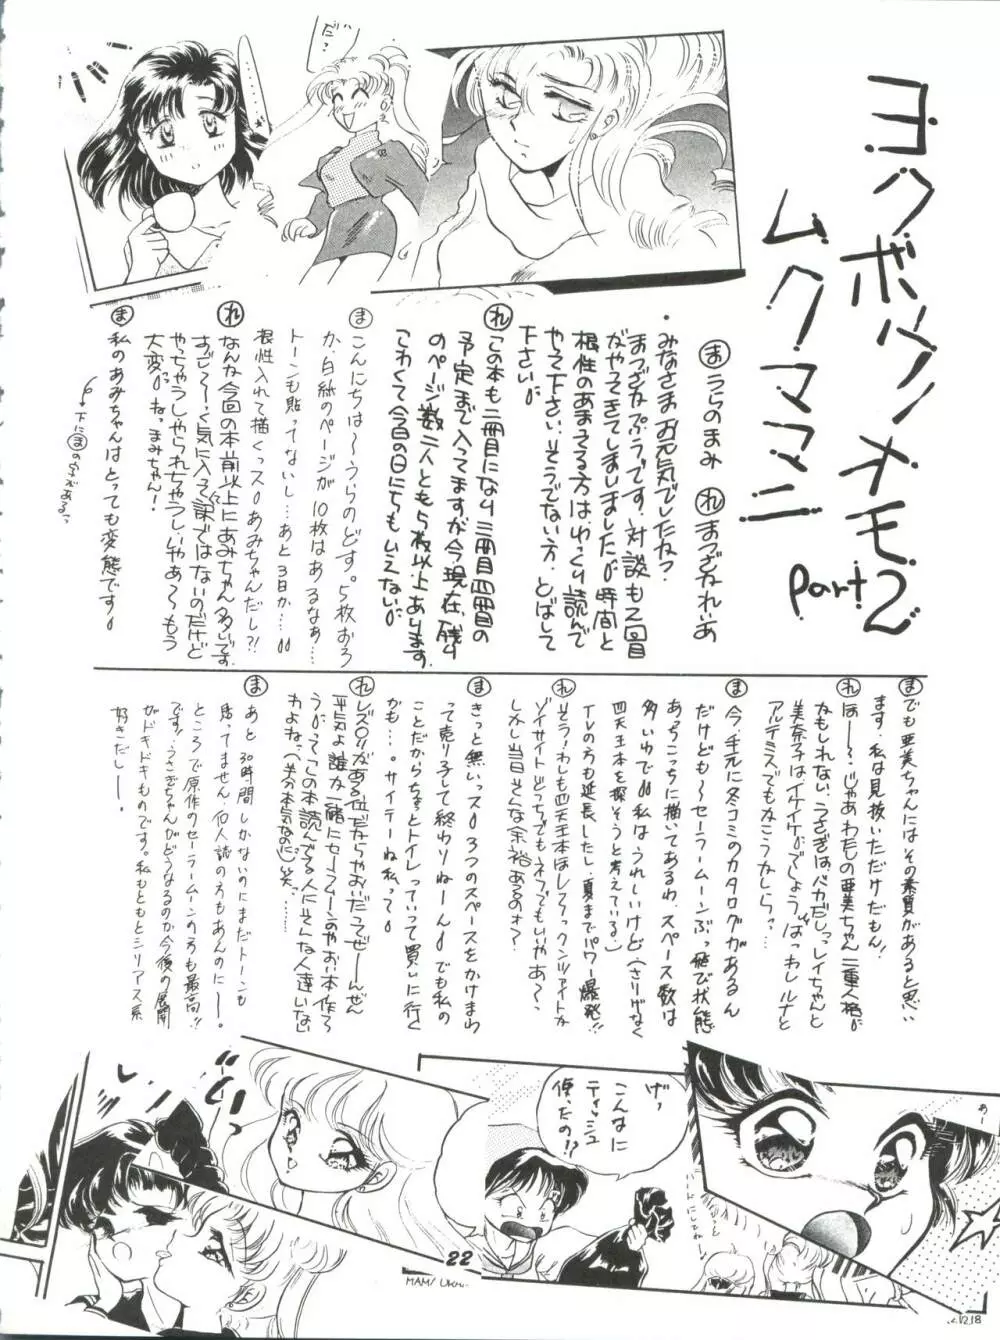 ヨクボウノオモムクママニ
Part 2
だ?
ま うらのまみ れ まつざかれいあ
みなさまお元気でしたね?
まつざかぷうです、対談も2回目
がやってきてしまいました。時間と
根性のあまってる方はゆっくり読んで
やって下さい、そうでない方、とばして
下さい。
れ この本も二冊目になり三冊目四冊目の
予定まで入ってますが今、現在、残り
のページ数二人とも5枚以上あります
こわくて今日の日にちもいえない
ま こんにちは〜うらのどす。5枚おろ
か、白紙のページが10枚はあるなぁ…
トーンも貼ってないし…あと3日か…
根性入れて描くっス あみちゃんだし?!
れ なんか今回の本前以上にあみちゃん多いです
すご〜く気に入って訳ではないのだけど
やっちゃうしやられちゃうし、いやぁ〜もう
大変 ねっ、まみちゃん!
ま 私のあみちゃんはとっても変態です
下にまの字がある
ま でも亜美ちゃんにはその素質があると思い
ます、私は見抜いただけだもん!
れ はぁ〜〜、じゃあわたしの亜美ちゃん二重人格
なもしれない、うさぎはバカだしっ、レイちゃんと
美奈子は、イケイケ でしょう ばっわし ルナと
アルテミスでもかこうかしらっ…
ま 今、手元に冬コミのカタログがあるん
だけども〜セーラームーンぶっ飛び状態
あっちこっちに描いてあるわ、スペース数は
多いわで 私はうれしいけど(さりげなく
四天王本を探そうと考えている)
TVの方も延長したし、夏までパワー爆発!!
れ そう!わしも四天王本ほしくてっ、クンツァイトか
ゾイサイトどっちでもネフでもいいやぁ〜、
しかし当日そんな余裕あるのか?
ま きっと無いっス 3つのスペースをかけまわ
って売り子して終わりねーーん でも私の
ことだからちょっとトイレっていって買いに行く
かも…サイテーね私って
れ レズ がある位だからやおいだってぜーーんぜん
平気よ 誰か一緒にセーラームーンのやおい本作ろ
う って この本読んでる人にそんな人達いない
わよねっ(半分本気なのに)笑…
ま あと30時間しかないのにまだトーンも
貼ってません、他人誌の方もあんのにー。
ところで原作のセーラームーンの方も最高!!
です!うさぎちゃんがどうなるのか今後の展開
がドキドキものです。私もともとシリアス系
好きだしー。
げっ
こんなに
ティッシュ
使ったの!?
22
MAMI URA
12.18